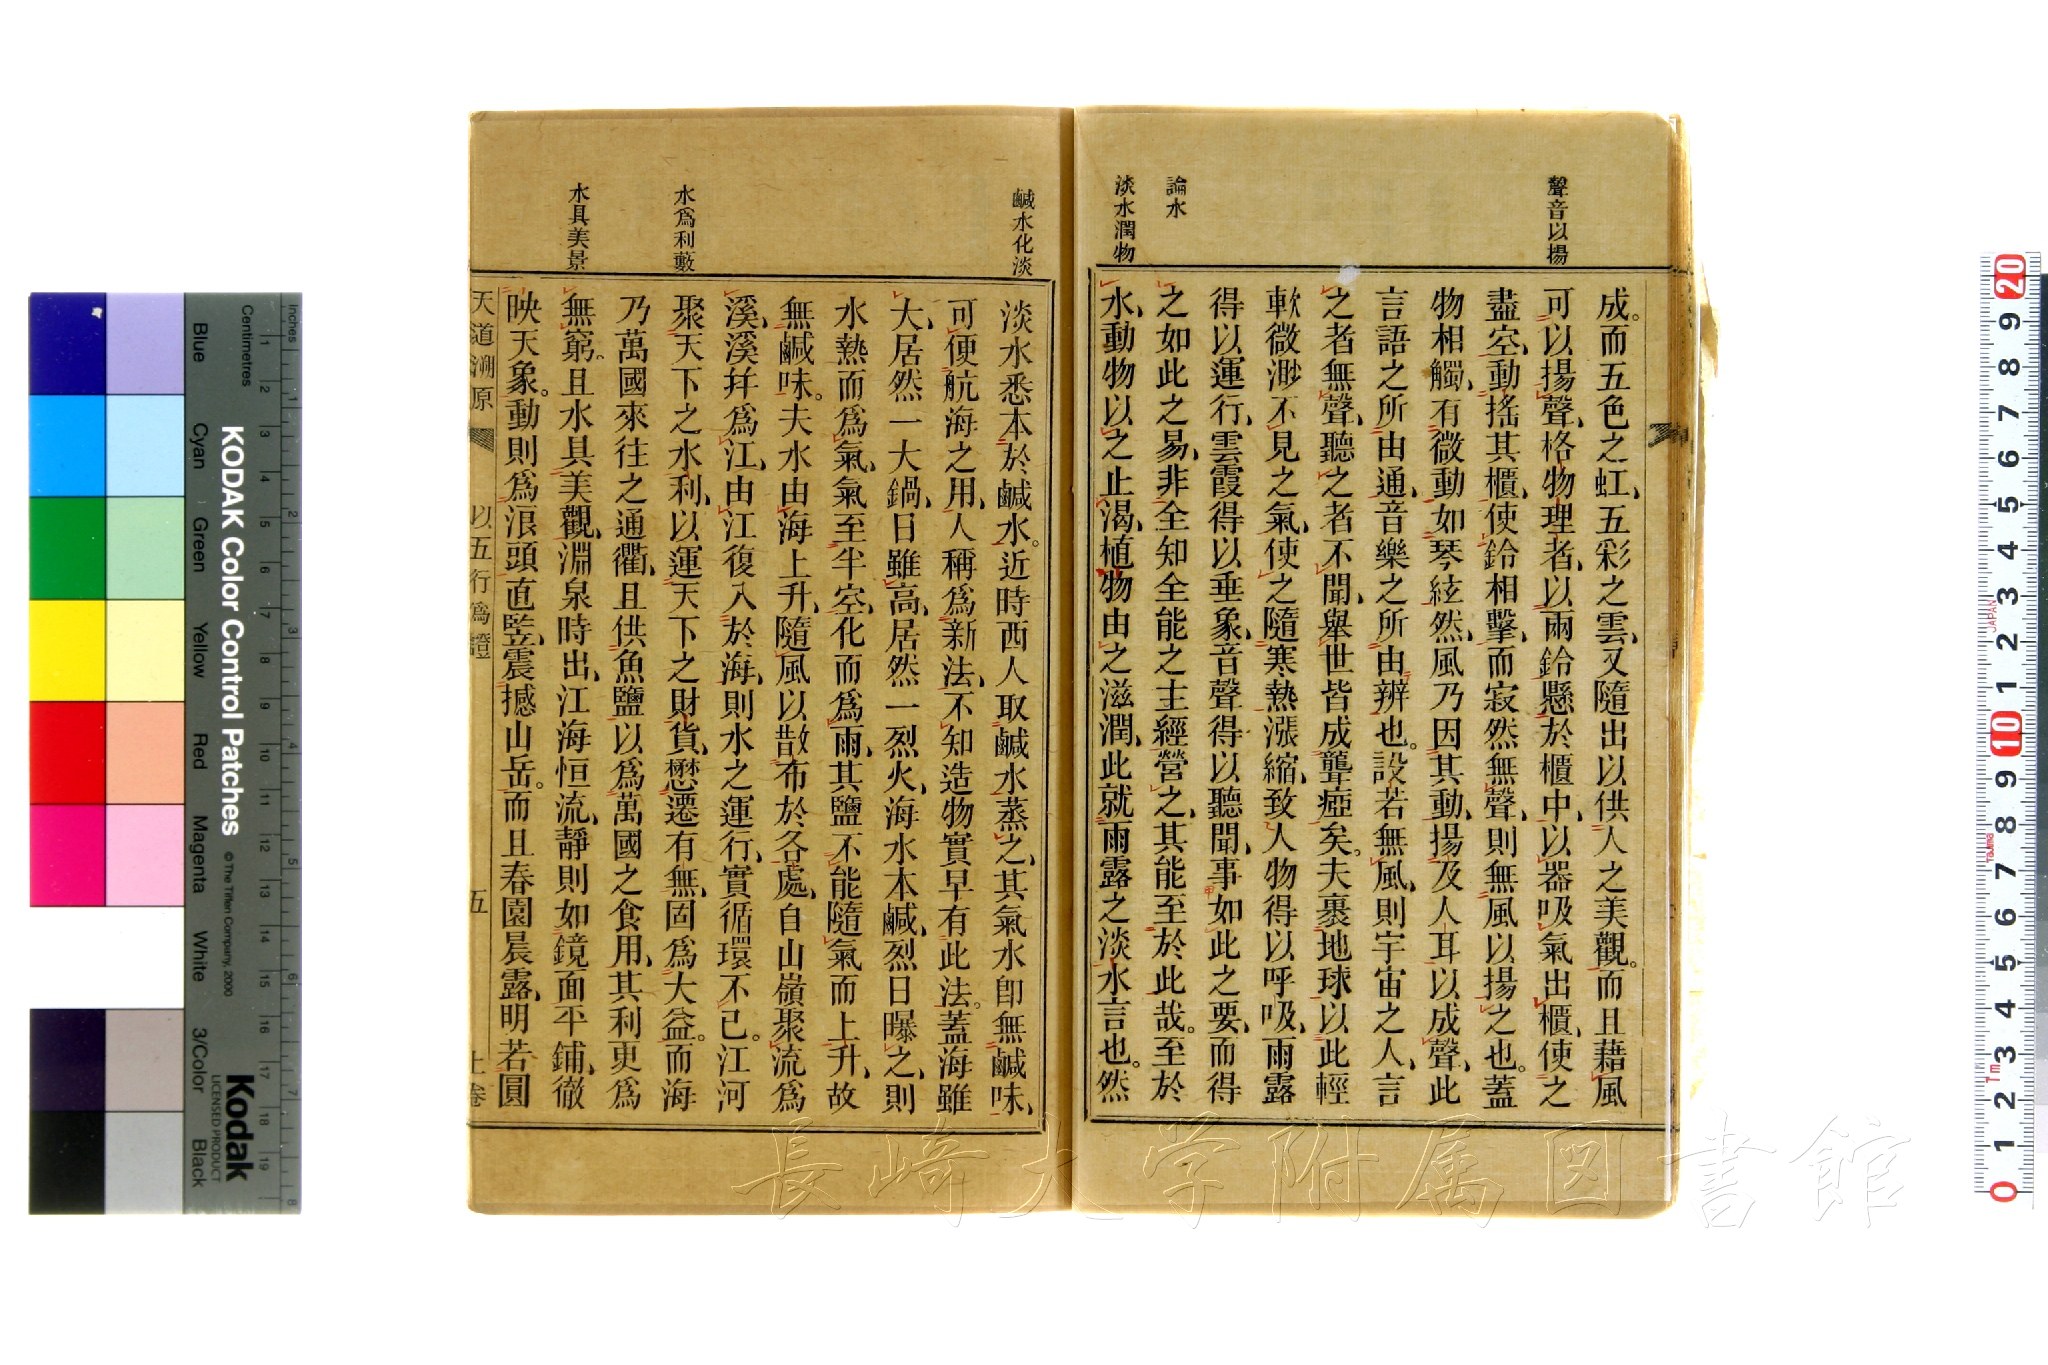 聲音以揚
論水
淡水潤物
成。而五色之虹、五彩之雲、又隨出以供人之美觀。而且藉風
可以揚聲、格物理者、以兩鈴懸於櫃中、以器吸氣出櫃、使之
盡空、動搖其櫃、使鈴相擊、而寂然無聲、則無風以揚之也。蓋
物相觸、有微動、如琴絃然、風乃因其動、揚及人耳以成聲、此
言語之所由通、音樂之所由辨也。設若無風、則宇宙之人、言
之者無聲、聽之者不聞、舉世皆成聾瘂矣。夫裹地球以此輕
軟微渺不見之氣、使之隨寒熱漲縮、致人物得以呼吸、雨露
得以運行、雲霞得以垂象、音聲得以聽聞、事如此之要、而得
之如此之易、非全知全能之主經營之、其能至於此哉。至於
水、動物以之止渴、植物由之滋潤、此就雨露之淡水言也。然
鹹水化淡
水爲利藪
水具美景
淡水悉本於鹹水。近時西人取鹹水蒸之、其氣水卽無鹹味、
可便航海之用、人稱爲新法、不知造物實早有此法。蓋海雖
大、居然一大鍋、日雖高、居然一烈火、海水本鹹、烈日曝之、則
水熱而爲氣、氣至半空、化而爲雨、其鹽不能隨氣而上升、故
無鹹味。夫水由海上升、隨風以散布於各處、自山嶺聚流爲
溪、溪幷爲江、由江復入於海、則水之運行、實循環不已。江河
聚天下之水利、以運天下之財貨、懋遷有無、固爲大益。而海
乃萬國來往之通衢、且供魚鹽以爲萬國之食用、其利更爲
無窮。且水具美觀、淵泉時出、江海恒流、靜則如鏡面平鋪、徹
映天象。動則爲浪頭直竪、震撼山岳。而且春園晨露、明若圓
天道溯原 以五行爲證 五 上卷
長崎大学附属図書館
KODAK Color Control Patches
© The Tiffen Company, 2000
Kodak
LICENSED PRODUCT
Inches
Centimetres
Blue
Cyan
Green
Yellow
Red
Magenta
White
3/Color
Black
1 2 3 4 5 6 7 8
1 2 3 4 5 6 7 8 9 10 11 12 13 14 15 16 17 18 19
20 9 8 7 6 5 4 3 2 1 10 9 8 7 6 5 4 3 2 1 0
JAPAN
Tajima